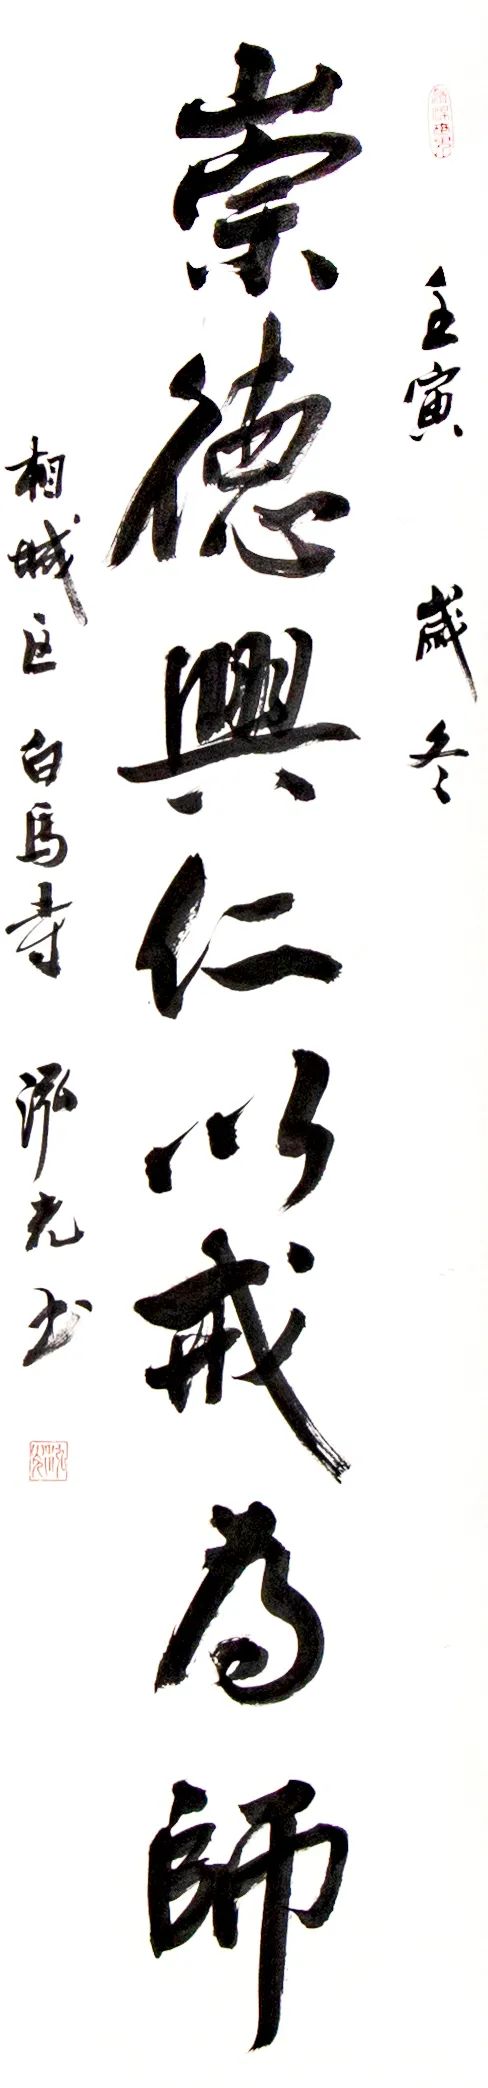 壬寅 歲冬
崇德興仁以戒為師
相城區 白馬寺 泓光书